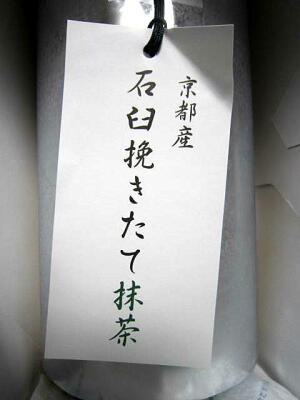 京都産
石臼挽きたて抹茶